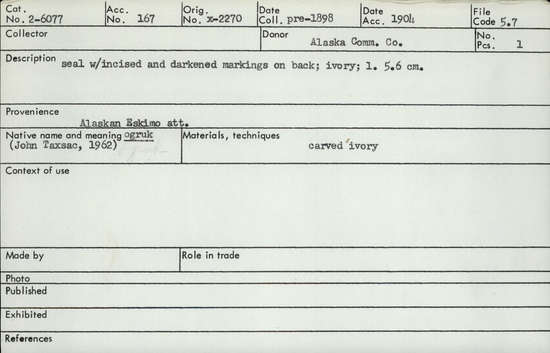 Cat. No. 2-6077 Acc. No. 167 Orig. No. x-2270 Date Coll. pre-1898 Date Acc. 1904 File Code 5.7
Collector Donor Alaska Comm. Co. No. Pcs. 1
Description seal w/incised and darkened markings on back; ivory; l. 5.6 cm.
Provenience Alaskan Eskimo att.
Native name and meaning ogruk
(John Taxsac, 1962)
Materials, techniques
carved ivory
Context of use
Made by Role in trade
Photo
Published
Exhibited
References